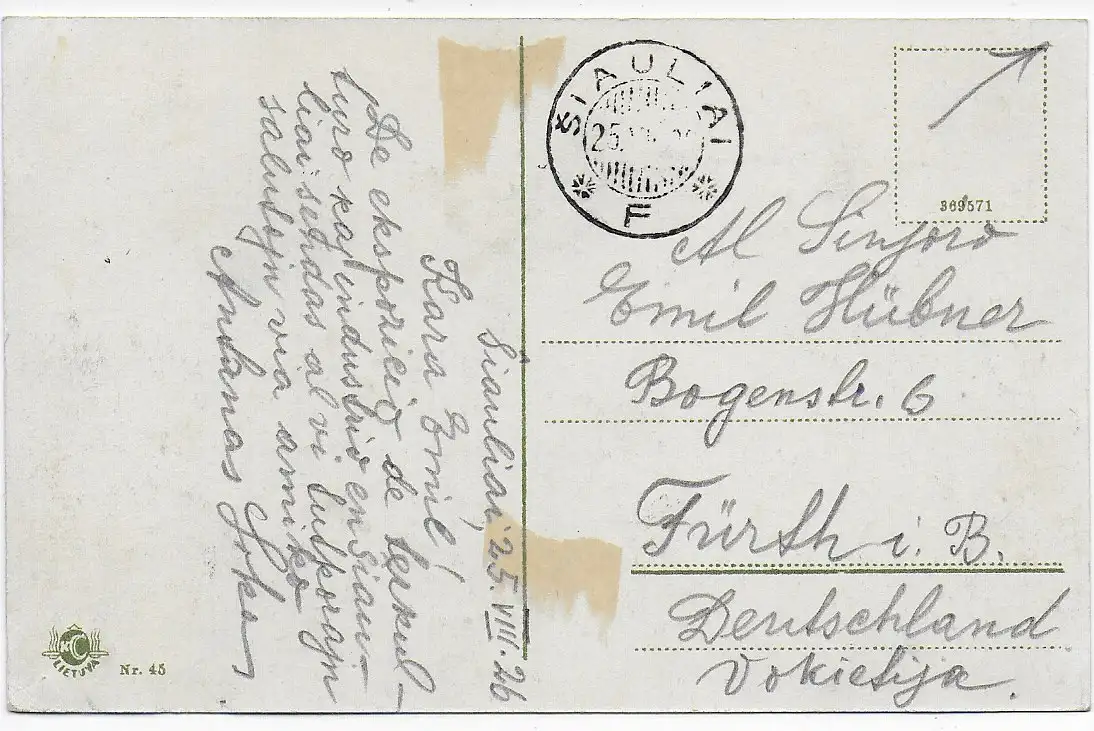 Šiauliai, 25.VIII.26
Kara Emil!
De ekspozicio de terkul-
turo kaj industrio en Šiau-
liai sendas al vi tutkorajn
salutojn via amiko
Antanas
ŠIAULIAI
25
F
369571
Al Sinjoro
Emil Hübner
Bogenstr. 6
Fürth i. B.
Deutschland
Vokietija.
KC
LIETUVA
Nr. 45